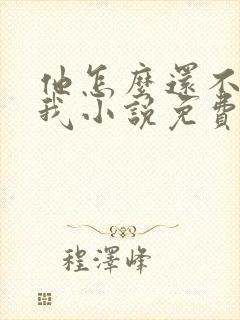 他怎麼還不
我小說免費
程澤峰